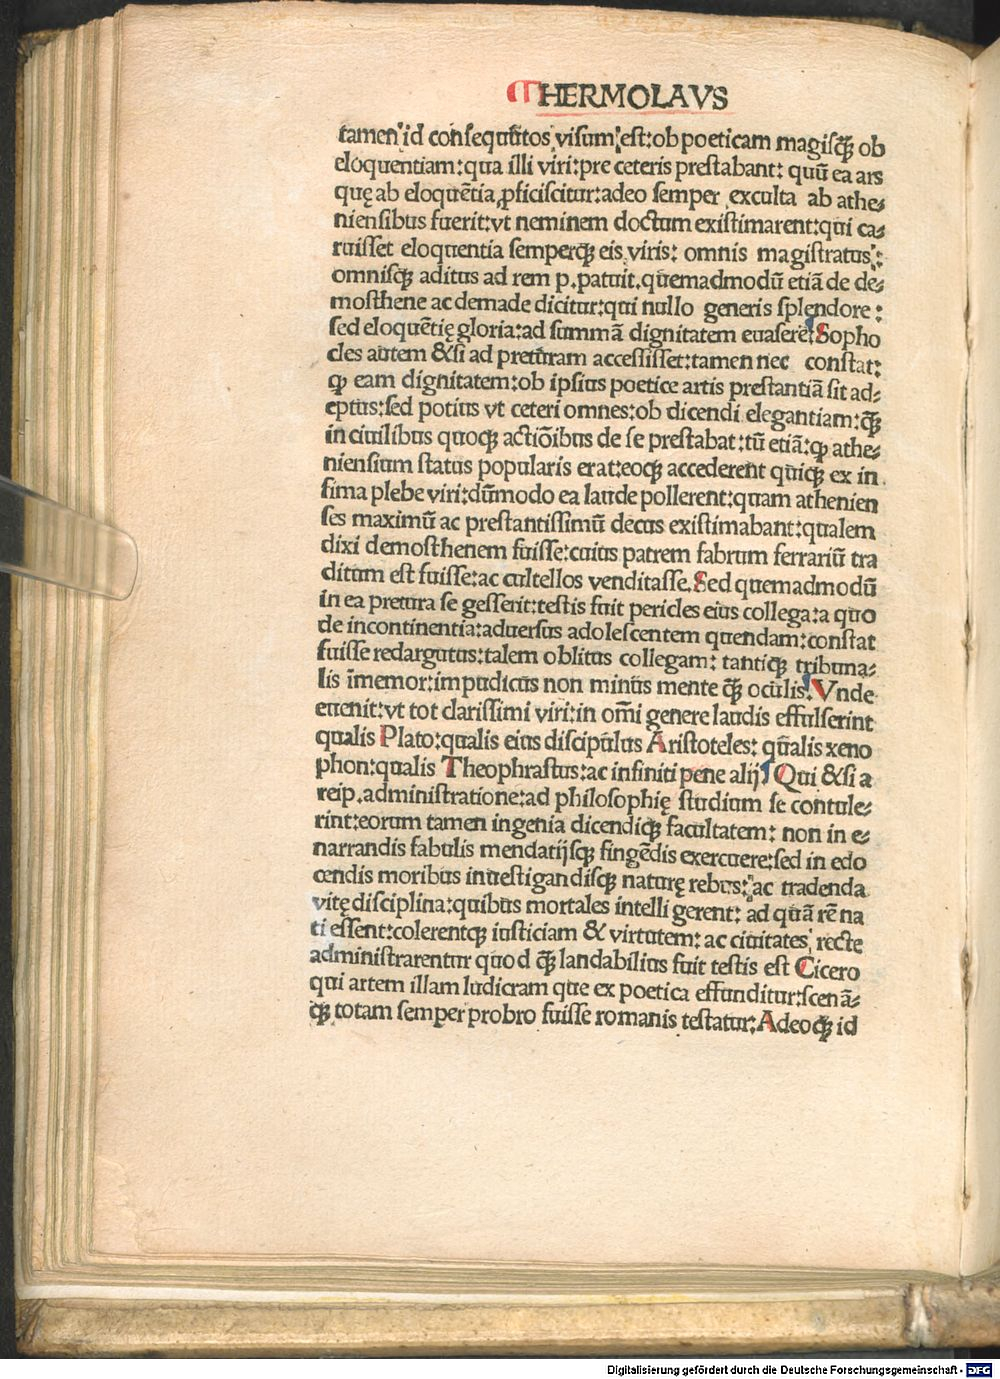 HERMOLAVS
tamen id consequutos visum est: ob poeticam magisq̃ȝ ob
eloquentiam: qua illi viri: pre ceteris prestabant: quū ea ars
quę ab eloquẽtia ꝓficiscitur: adeo semper exculta ab athe⸗
niensibus fuerit: vt neminem doctum existimarent: qui ca⸗
ruisset eloquentia semperqȝ eis viris: omnis magistratus:
omnisqȝ aditus ad rem p. patuit. quemadmodū etiā de de⸗
mosthene ac demade dicitur: qui nullo generis splendore:
sed eloquẽtię gloria: ad summā dignitatem euasere: Sopho
cles autem &si ad preturam accessisset: tamen nec constat:
ꝙ eam dignitatem: ob ipsius poetice artis prestantiā sit ad⸗
eptus: sed potius vt ceteri omnes: ob dicendi elegantiam: q̃ȝ
in ciuilibus quoqȝ actiōibus de se prestabat: tū etiā: ꝙ athe⸗
niensium status popularis erat: eoqȝ accederent quiqȝ ex in
fima plebe viri: dūmodo ea laude pollerent: quam athenien
ses maximū ac prestantissimū decus existimabant: qualem
dixi demosthenem fuisse: cuius patrem fabrum ferrariū tra
ditum est fuisse: ac cultellos venditasse. Sed quemadmodū
in ea pretura se gesserit: testis fuit pericles eius collega: a quo
de incontinentia: aduersus adolescentem quendam: constat
fuisse redargutus: talem oblitus collegam: tantiqȝ tribuna⸗
lis īmemor: impudicus non minus mente q̃ȝ oculis. Vnde
euenit: vt tot clarissimi viri: in om̄i genere laudis effulserint
qualis Plato: qualis eius discipulus Aristoteles: qualis xeno
phon: qualis Theophrastus: ac infiniti pene alij Qui &si a
reip. administratione: ad philosophię studium se contule⸗
rint: eorum tamen ingenia dicendiqȝ facultatem: non in e⸗
narrandis fabulis mendatijsqȝ fingẽdis exercuere: sed in edo
cendis moribus inuestigandisqȝ naturę rebus: ac tradenda
vitę disciplina: quibus mortales intelligerent: ad quā rẽ na
ti essent: colerentqȝ iusticiam & virtutem: ac ciuitates recte
administrarentur quod q̃ȝ landabilius fuit testis est Cicero
qui artem illam ludicram que ex poetica effunditur: scenā⸗
q̃ȝ totam semper probro fuisse romanis testatur: Adeoq̃ȝ id
Digitalisierung gefördert durch die Deutsche Forschungsgemeinschaft - DFG